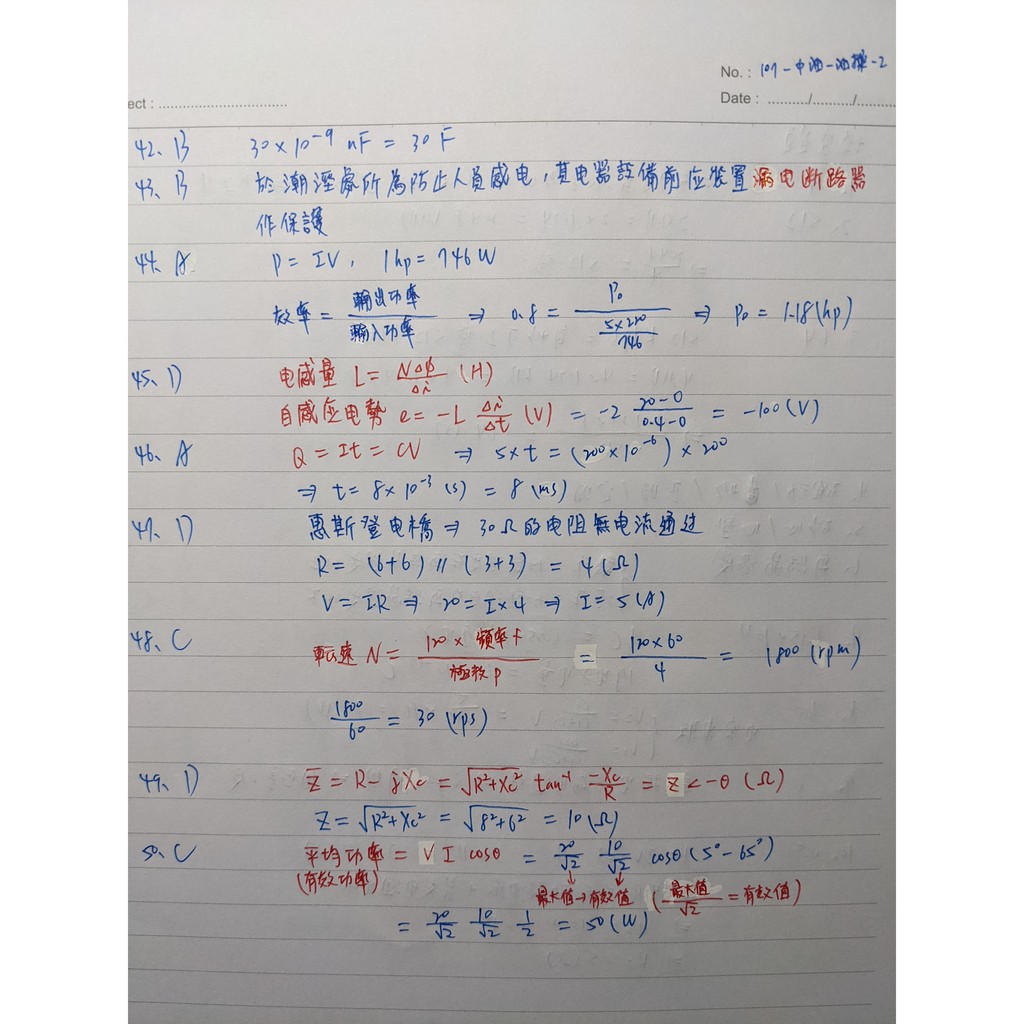 No. : 107-中油-油操-2
ect : ................................
Date : ........../........../..........
42、B 30×10⁻⁹ nF = 30 F
43、B 於潮溼處所為防止人員感电,其电器設備前应裝置漏电断路器
作保護
44、A P = IV, 1hp = 746 W
效率 = 輸出功率/輸入功率 ⇒ 0.8 = Po/(5×220/746) ⇒ Po = 1.18 (hp)
45、D 电感量 L = NΔφ/Δi (H)
自感应电勢 e = -L Δi/Δt (V) = -2 (20-0)/(0.4-0) = -100 (V)
46、A Q = It = CV ⇒ 5×t = (200×10⁻⁶)×200
⇒ t = 8×10⁻³ (s) = 8 (ms)
47、D 惠斯登电橋 ⇒ 30Ω的电阻無电流通过
R = (6+6) // (3+3) = 4 (Ω)
V = IR ⇒ 20 = I×4 ⇒ I = 5 (A)
48、C 転速 N = 120 × 頻率f/極数p = 120×60/4 = 1800 (rpm)
1800/60 = 30 (rps)
49、D Z̄ = R - jXc = √(R²+Xc²) tan⁻¹ -Xc/R = Z∠-θ (Ω)
Z = √(R²+Xc²) = √(8²+6²) = 10 (Ω)
50、C 平均功率 = V I cosθ = 20/√2 10/√2 cosθ (5°-65°)
(有效功率) 最大值→有效值 (最大值/√2 = 有效值)
= 20/√2 10/√2 1/2 = 50 (W)